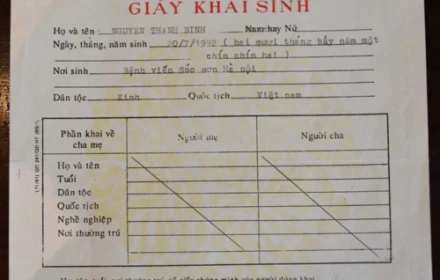 GIẤY KHAI SINH
Họ và tên NGUYEN THANH BINH Nam hay Nữ
Ngày, tháng, năm sinh 20/7/1992 ( hai mươi tháng bảy năm một
chín chín hai )
Nơi sinh Bệnh viện Sóc sơn Hà nội
Dân tộc Kinh Quốc tịch Việt nam
Phần khai về cha mẹ Người mẹ Người cha
Họ và tên
Tuổi
Dân tộc
Quốc tịch
Nghề nghiệp
Nơi thường trú